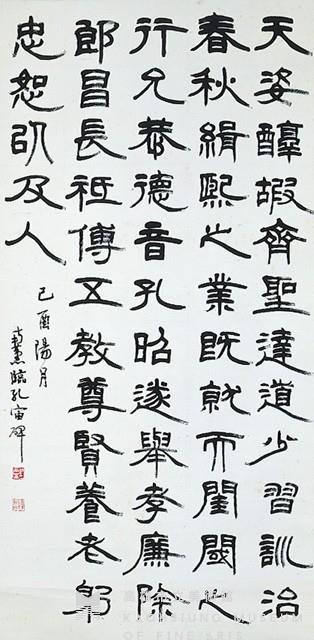 天姿醇嘏齊聖達道少習訓治
春秋緝熙之業既就而閨閾之
行允恭德音孔昭遂舉孝廉除
郎昌長祗傅五教尊賢養老躬
忠恕㠯及人
己酉陽月
臨孔宙碑
高雄市立美術館
KAOHSIUNG MUSEUM
OF FINE ARTS